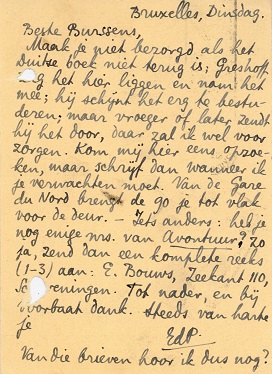 Bruxelles, Dinsdag.
Beste Burssens,
Maak je niet bezorgd als het
Duitse boek niet terug is; Greshoff
zag het hier liggen en nam het
mee; hij schijnt het erg te bestu-
deren; maar vroeger of later zendt
hij het door, daar zal ik wel voor
zorgen. Kom mij hier eens opzoe-
ken, maar schrijf dan wanneer ik
je verwachten moet. Van de Gare
du Nord brengt de 90 je tot vlak
voor de deur. — Iets anders: heb je
nog enige nrs. van Avontuur? Zo
ja, zend dan een komplete reeks
(1-3) aan: E. Bouws, Zeekant 110,
Scheveningen. Tot nader, en bij
voorbaat dank. Steeds van harte
je
EdP.
Van die brieven hoor ik dus nog?